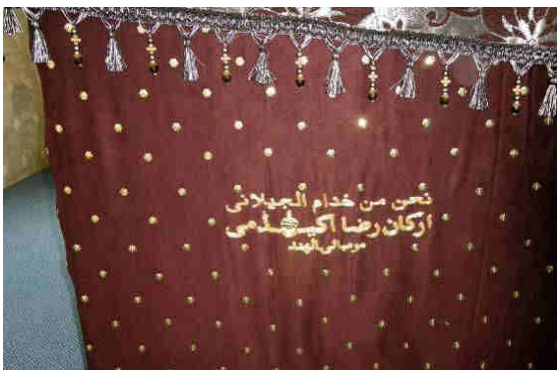 نحن من خدام الجيلانى
اركان رضا اكيڈمى
الهند